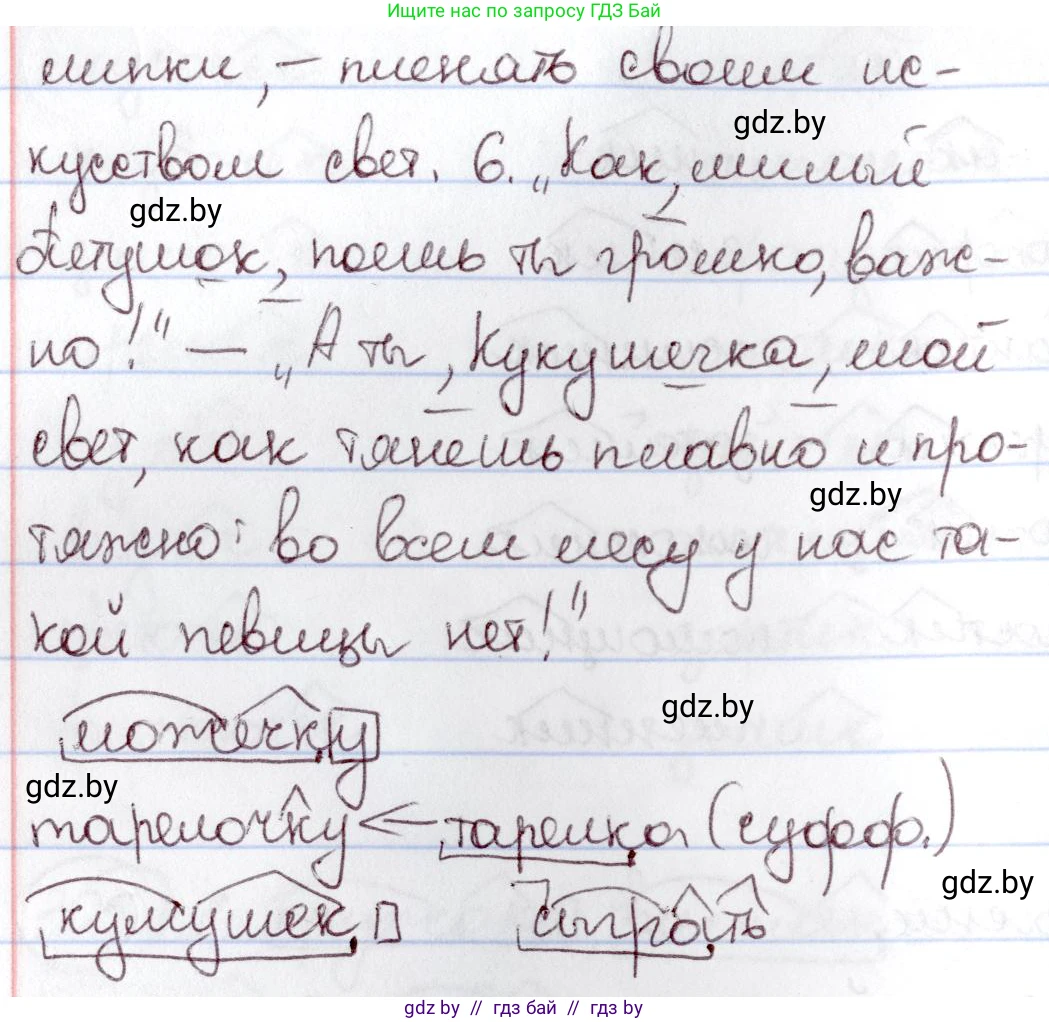 Ищите нас по запросу ГДЗ Бай
липки, – пленять своим ис-
gdz.by
кусством свет. 6. „Как, милый
gdz.by
Петушок, поешь ты громко, важ-
но!" – „А ты, Кукушечка, мой
свет, как тянешь плавно и про-
gdz.by
тяжно: во всем лесу у нас та-
кой певицы нет!"
gdz.by
ложечку
gdz.by
тарелочку ← тарелка (суфф.)
gdz.by
сыграть
gdz.by // гдз бай // гдз by